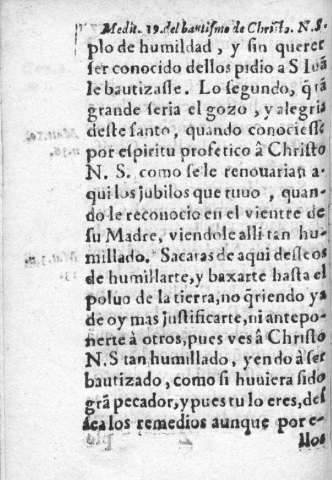 Medit. 19. del bautismo de Christo. N. S.
plo de humildad, y sin querer
ser conocido dellos pidio a S Iuã
le bautizasse. Lo segundo, q̃ tã
grande seria el gozo, y alegria
deste santo, quando conociesse
por espiritu profetico â Christo
N. S. como se le renouarian a-
qui los jubilos que tuuo, quan-
do le reconocio en el vientre de
su Madre, viendole alli tan hu-
millado. Sacaras de aqui desseos
de humillarte, y baxarte hasta el
poluo de la tierra, no q̃riendo ya
de oy mas justificarte, ni antepo-
nerte à otros, pues ves â Christo
N. S tan humillado, yendo à ser
bautizado, como si huuiera sido
grã pecador, y pues tu lo eres, des
sea los remedios aunque por e-
llos